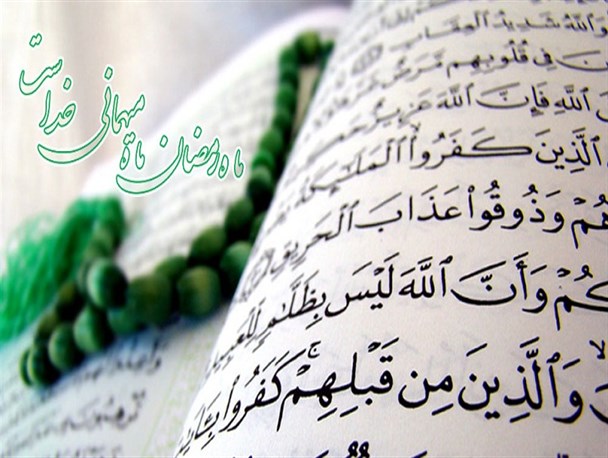 ماه رمضان ماه میهمانی خداست
وَٱللَّهُ شَدِيدُ ٱلْعِقَابِ
فِى قُلُوبِهِم مَّرَضٌ
ٱللَّهِ فَإِنَّ ٱللَّهَ عَزِيزٌ
ٱلَّذِينَ كَفَرُوا۟ ٱلْمَلَـٰٓئِكَةُ
وَذُوقُوا۟ عَذَابَ ٱلْحَرِيقِ
وَأَنَّ ٱللَّهَ لَيْسَ بِظَلَّـٰمٍ لِّلْعَبِيدِ
وَٱلَّذِينَ مِن قَبْلِهِمْ ۚ كَفَرُوا۟ بِـَٔايَـٰ